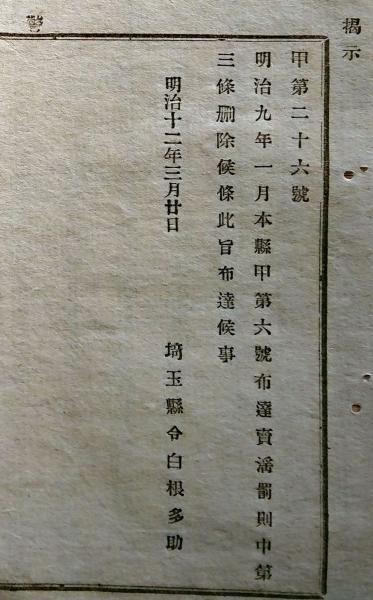 掲示
甲第二十六號
明治九年一月本縣甲第六號布達賣淫罰則中第
三條刪除候條此旨布達候事
明治十二年三月廿日
埼玉縣令白根多助